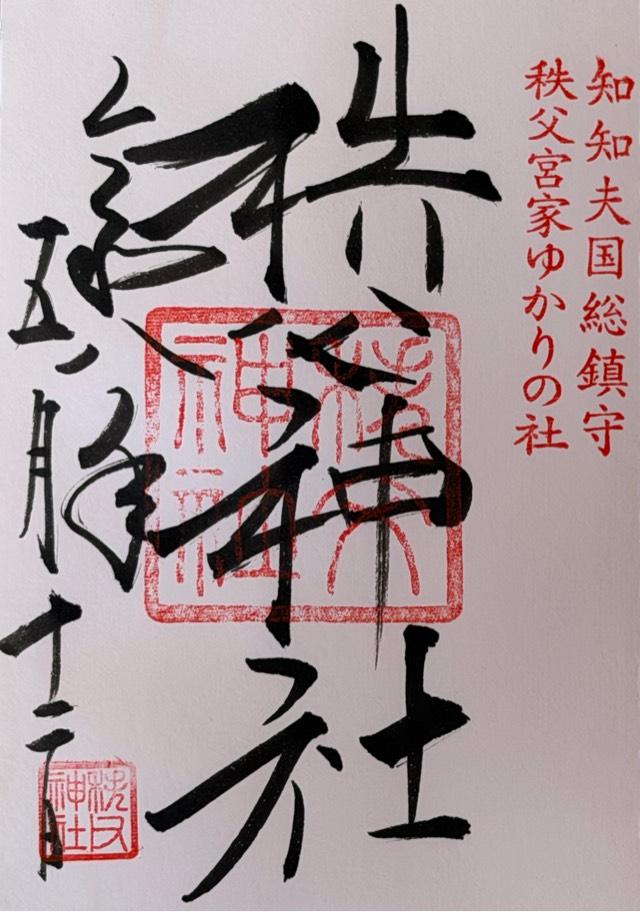 知知夫国総鎮守
秩父宮家ゆかりの社
秩父神社
秩父神社
令和年
五月十二日
秩父神社